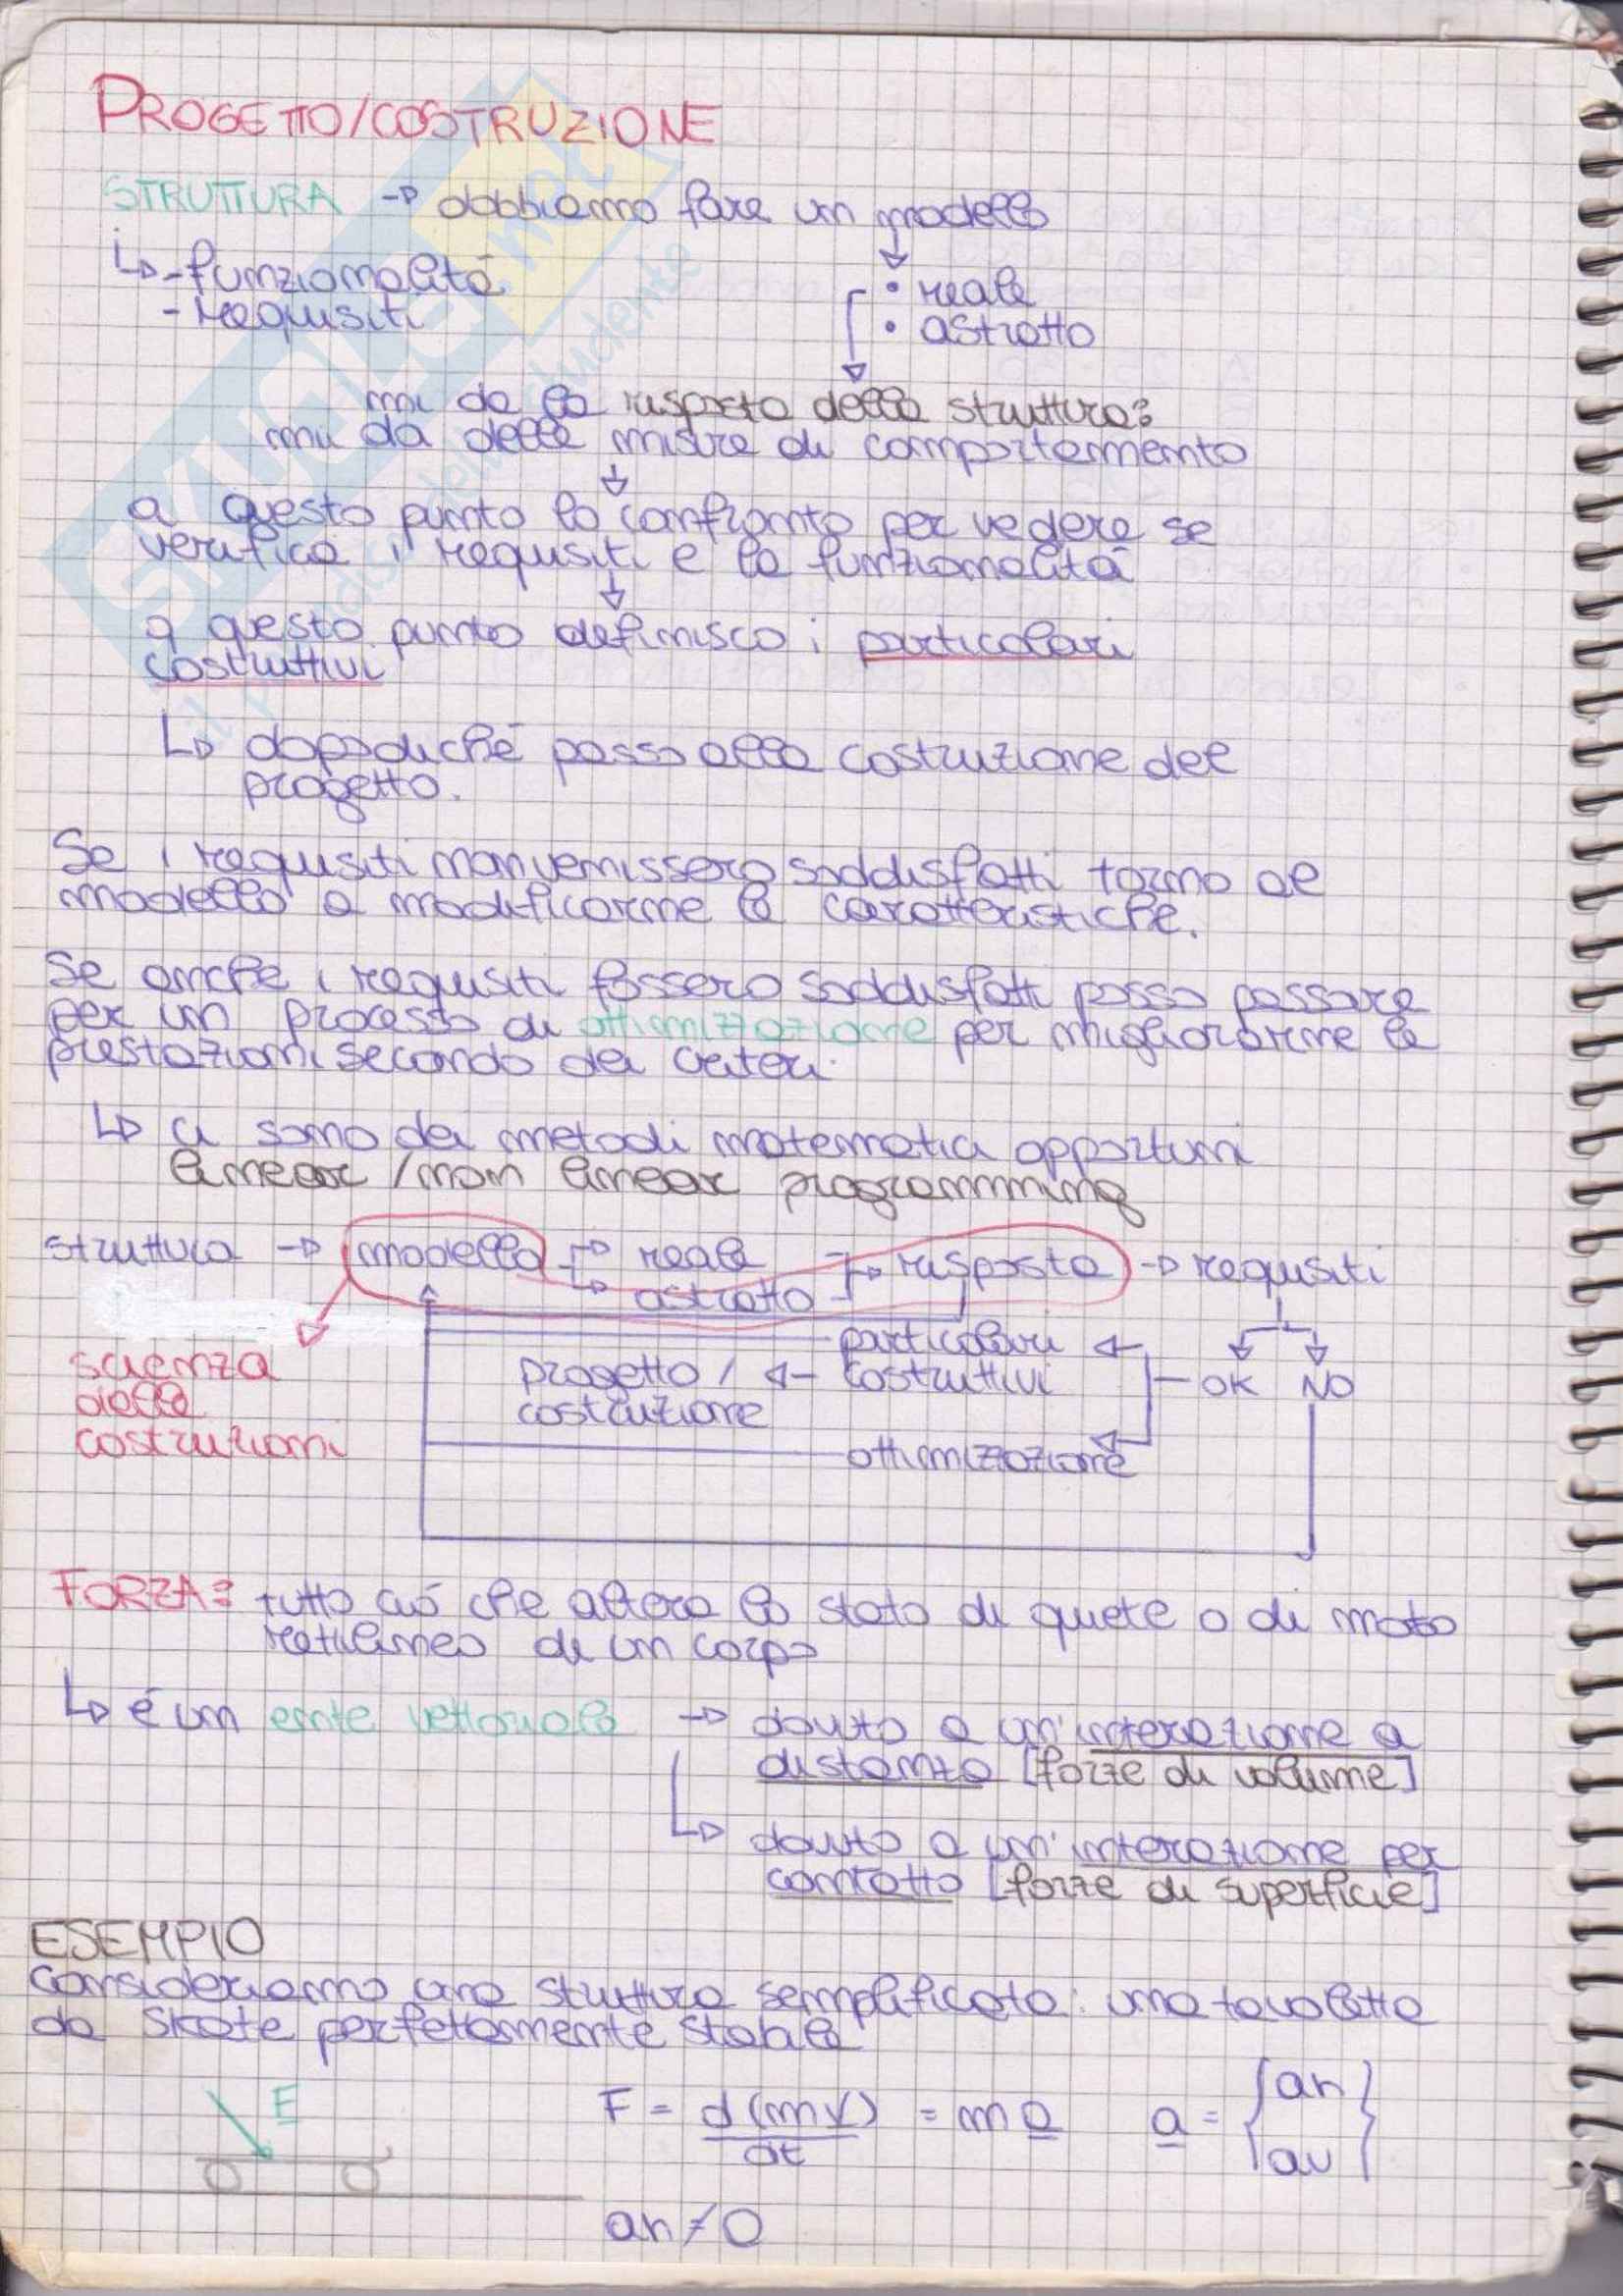 PROGETTO/COSTRUZIONE
STRUTTURA → dobbiamo fare un modello
↳ - funzionalità
- requisiti
• reale
• astratto
mi da la risposta della struttura:
mi dà delle misure di comportamento
a questo punto lo confronto per vedere se
verifica i requisiti e la funzionalità
a questo punto definisco i particolari
costruttivi
↳ dopodiché passo alla costruzione del
progetto.
Se i requisiti non venissero soddisfatti torno al
modello a modificarne le caratteristiche.
Se anche i requisiti fossero soddisfatti posso passare
per un processo di ottimizzazione per migliorarne le
prestazioni secondo dei criteri.
↳ ci sono dei metodi matematici opportuni
linear / non linear programming
struttura → modello → reale → risposta → requisiti
↳ astratto
particolari
scienza
progetto / ← costruttivi
OK NO
delle
costruzione
costruzioni
ottimizzazione
FORZA: tutto ciò che altera lo stato di quiete o di moto
rettilineo di un corpo
↳ é un ente vettoriale → dovuto a un'interazione a
distanza [forze di volume]
↳ dovuto a un'interazione per
contatto [forze di superficie]
ESEMPIO
Consideriamo una struttura semplificata: una tavoletta
da skate perfettamente stabile
F
F = d(mv)/dt = ma a = {ah av}
ah ≠ 0
SKUOLA.net
il paradiso dello studente